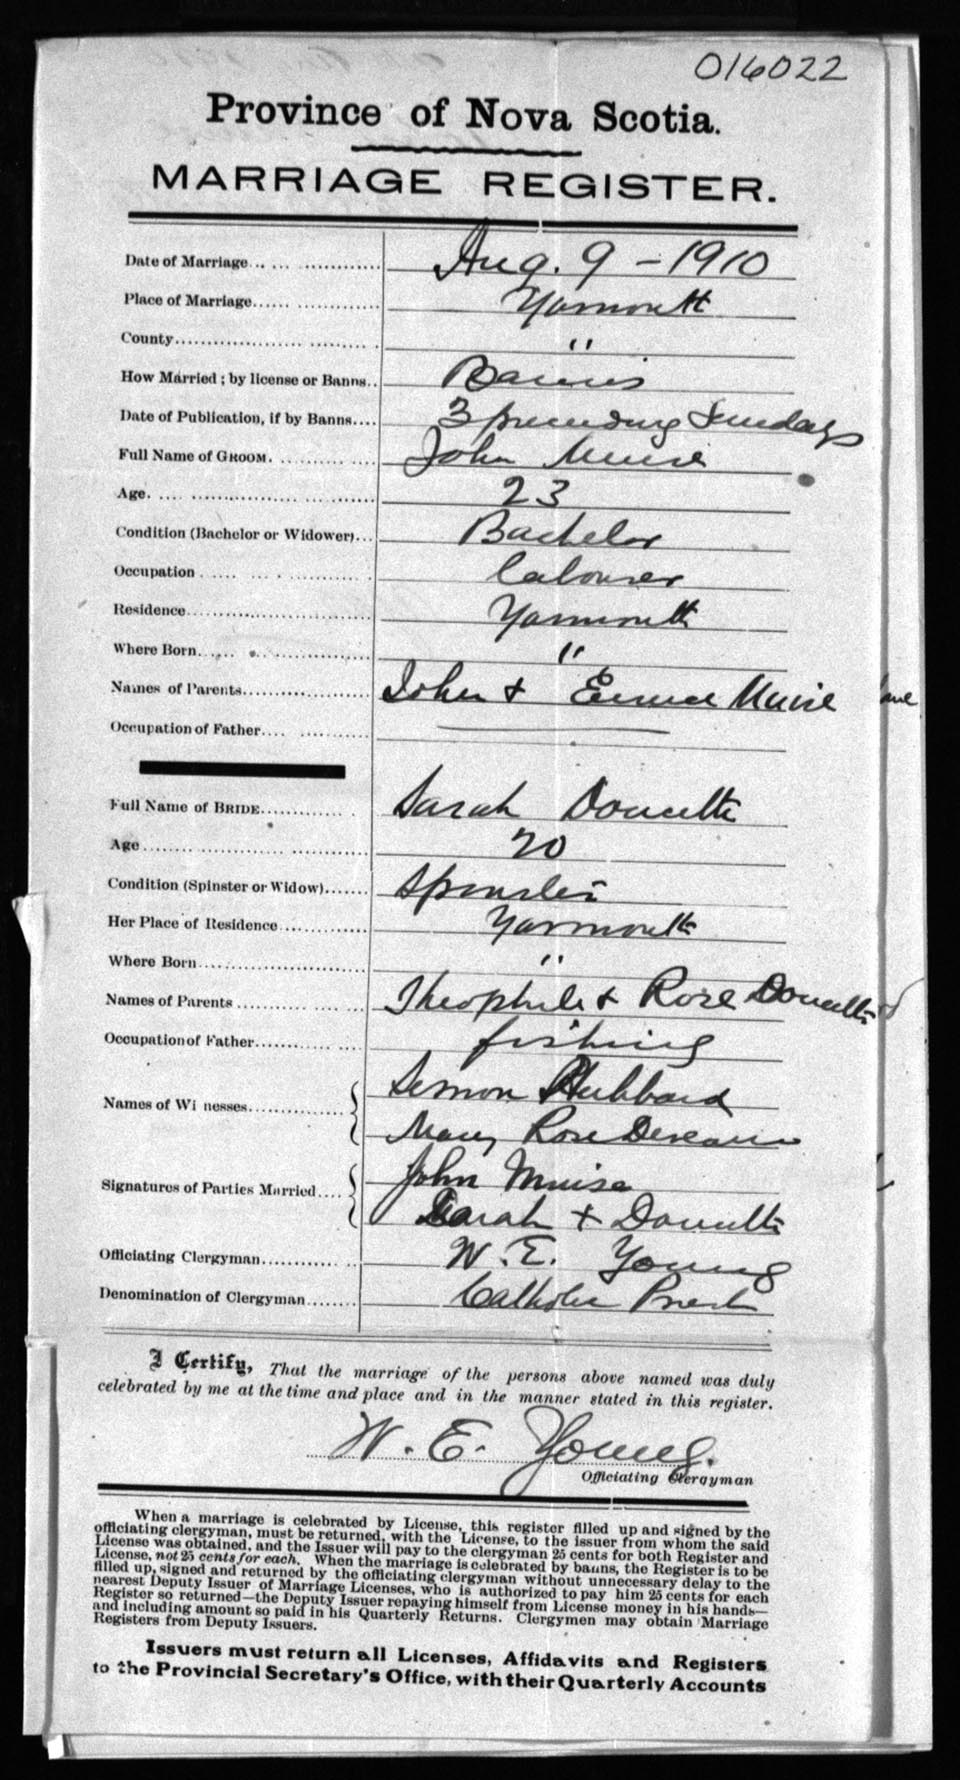 016022
Province of Nova Scotia.
MARRIAGE REGISTER.
Date of Marriage Aug. 9 - 1910
Place of Marriage Yarmouth
County "
How Married; by license or Banns Banns
Date of Publication, if by Banns 3 preceeding Sundays
Full Name of GROOM John Muise
Age 23
Condition (Bachelor or Widower) Bachelor
Occupation labourer
Residence Yarmouth
Where Born "
Names of Parents John & Muise
Occupation of Father
Full Name of BRIDE Sarah Doucette
Age 20
Condition (Spinster or Widow) Spinster
Her Place of Residence Yarmouth
Where Born "
Names of Parents Theophile & Rose Doucette
Occupation of Father fishing
Simon Hubbard
Names of Wi nesses
Mary Rose
John Muise
Signatures of Parties Married
Sarah + Doucette
Officiating Clergyman W. E. Young
Denomination of Clergyman Catholic Priest
I Certify, That the marriage of the persons above named was duly
celebrated by me at the time and place and in the manner stated in this register.
W. E. Young.
Officiating Clergyman
When a marriage is celebrated by License, this register filled up and signed by the
officiating clergyman, must be returned, with the License, to the issuer from whom the said
License was obtained, and the Issuer will pay to the clergyman 25 cents for both Register and
License, not 25 cents for each. When the marriage is celebrated by banns, the Register is to be
filled up, signed and returned by the officiating clergyman without unnecessary delay to the
nearest Deputy Issuer of Marriage Licenses, who is authorized to pay him 25 cents for each
Register so returned—the Deputy Issuer repaying himself from License money in his hands—
and including amount so paid in his Quarterly Returns. Clergymen may obtain Marriage
Registers from Deputy Issuers.
Issuers must return all Licenses, Affidavits and Registers
to the Provincial Secretary's Office, with their Quarterly Accounts